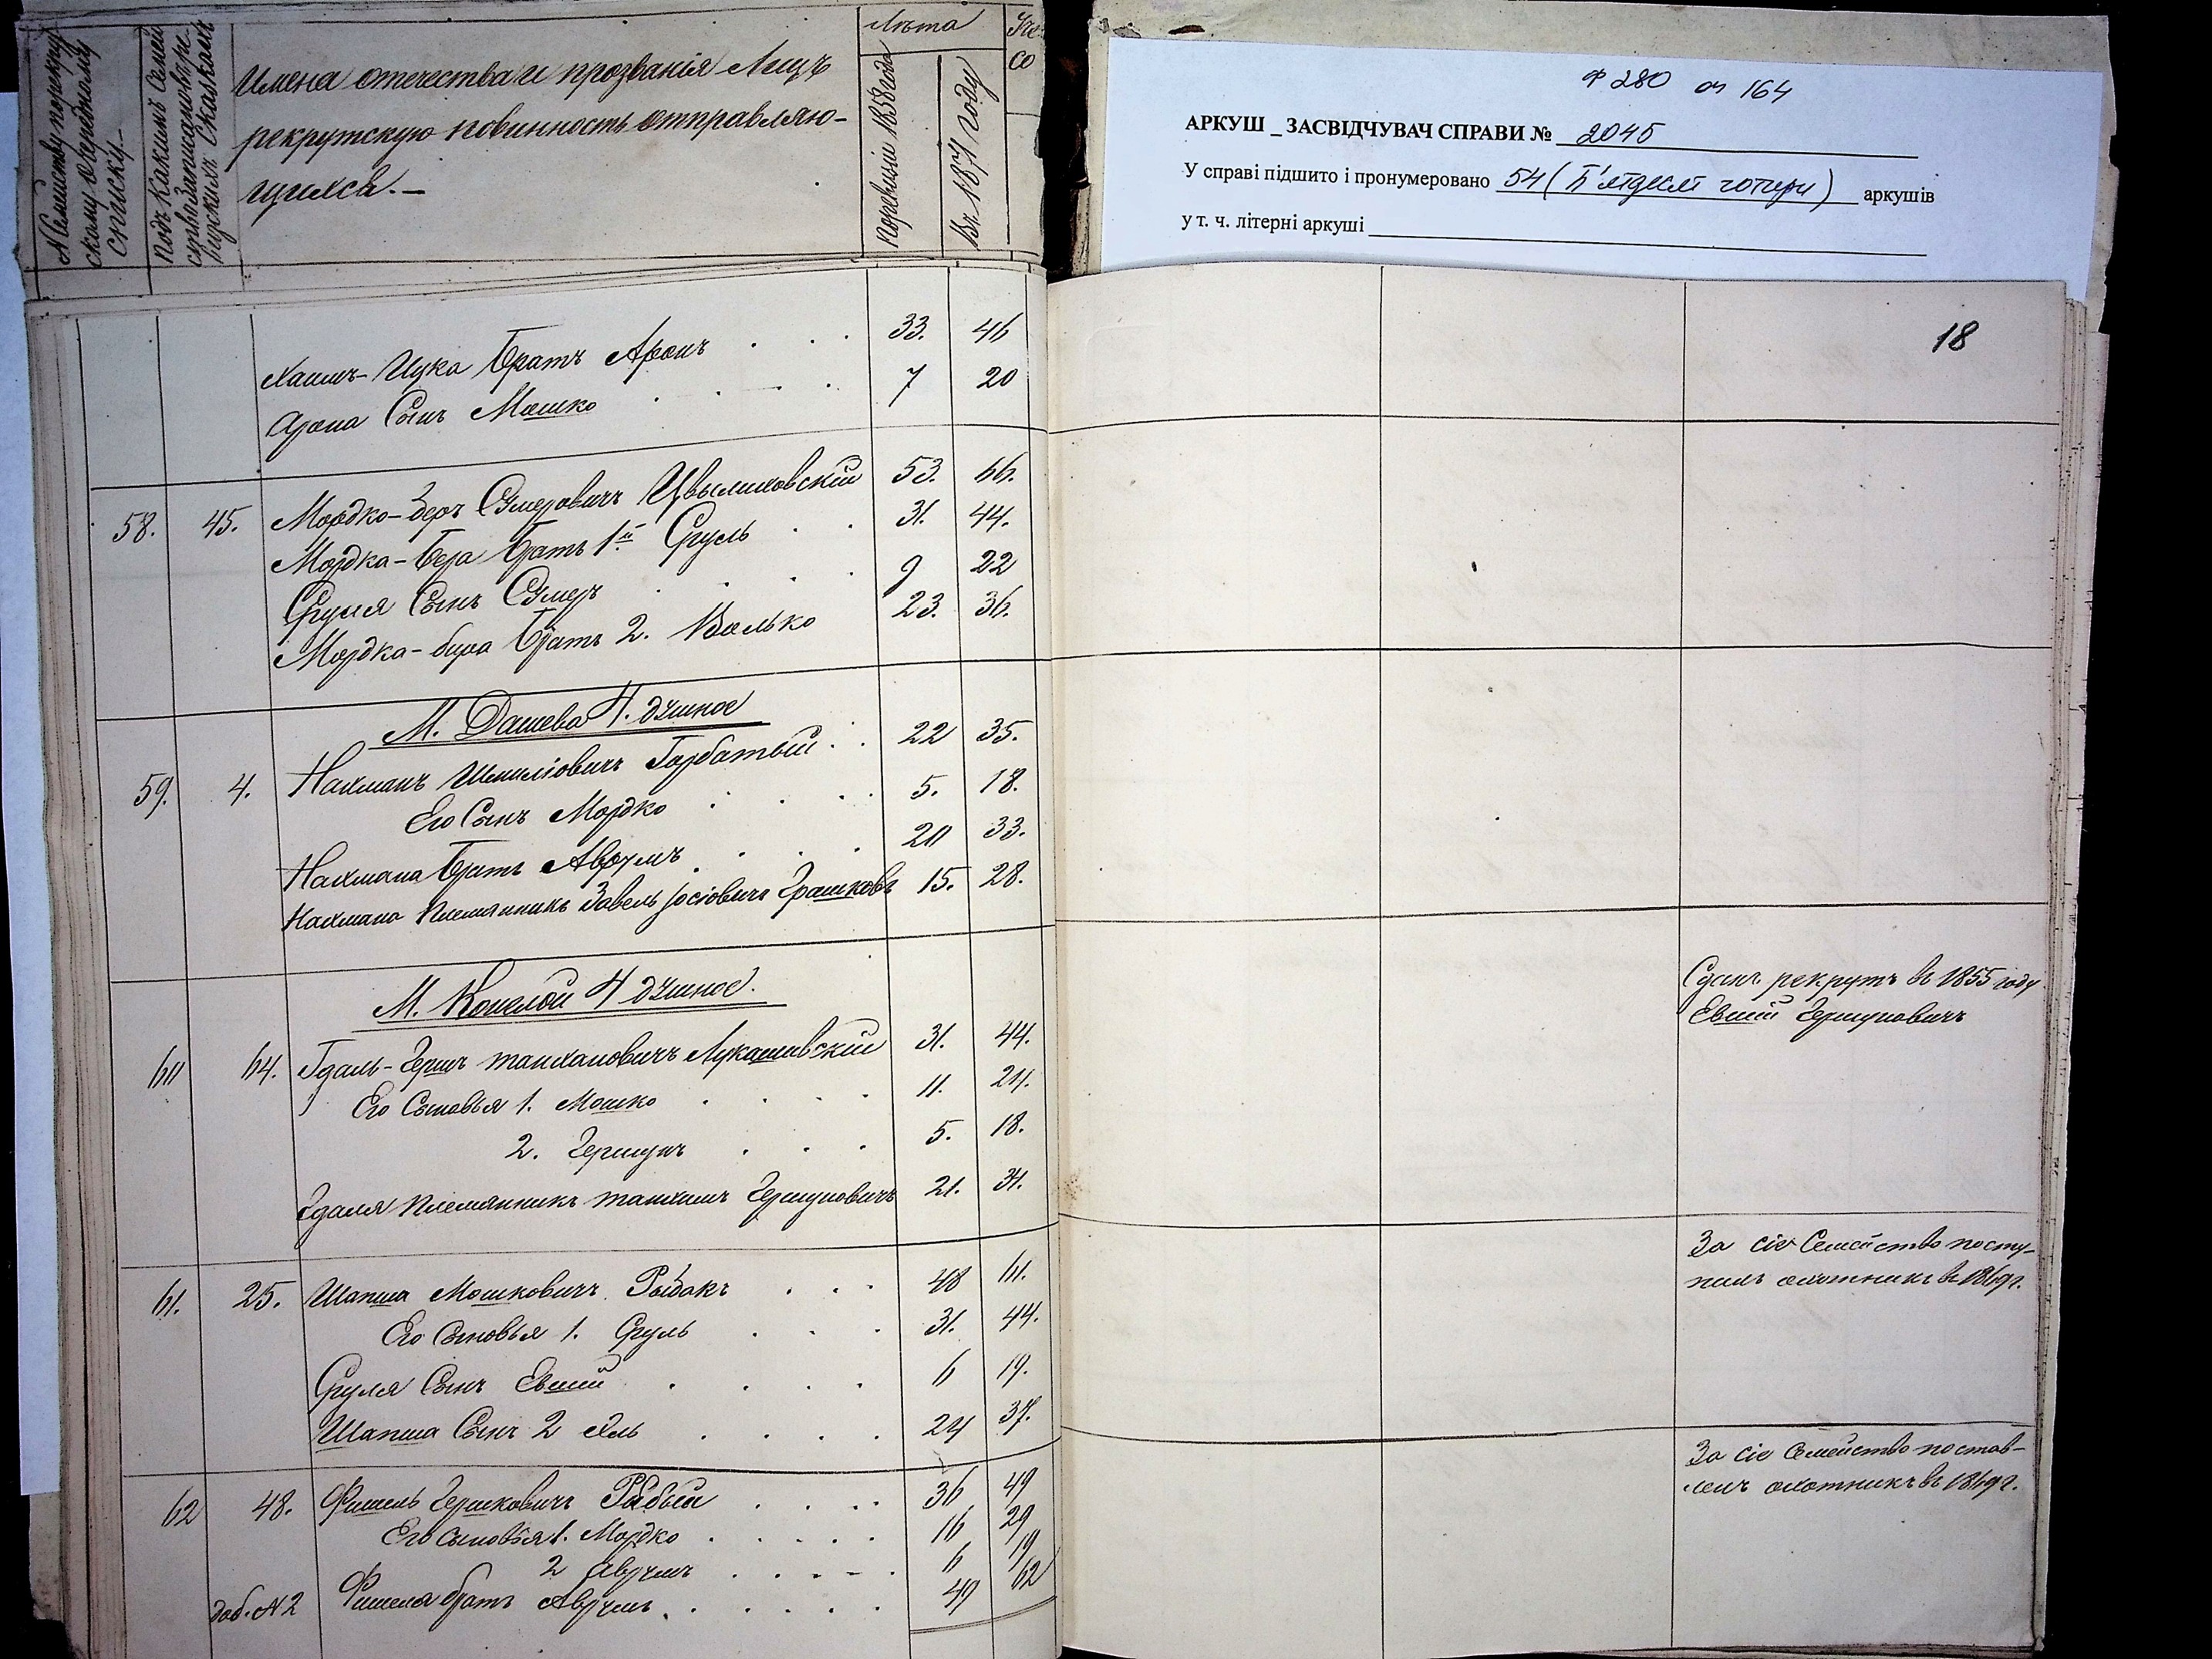 № по семейству по рекрутскому очередному списку
Подъ какимъ № семейство записано въ ревизскихъ сказкахъ
Имена отечества и прозванія лицъ
рекрутскую повинность отправляю-
щихся.
Лѣта
По ревизіи 1858 года
Въ 1871 году
Ф 280 оп 164
АРКУШ _ ЗАСВІДЧУВАЧ СПРАВИ № 2045
У справі підшито і пронумеровано 54 (П'ятдесят чотири) аркушів
у т. ч. літерні аркуші
18
Хаимъ-Ицка братъ Аронъ 33. 46
Арона сынъ Мошко 7 20
58. 45. Мордко-Беръ Сумеровичъ 53. 66.
Мордка-Бера братъ 1й Сруль 31. 44.
Сруля сынъ Сумеръ 9 22
Мордка-Бера братъ 2. Волько 23. 36.
М. Дашева Ч. душное
59. 4. Нахманъ Шмиліовичъ Горбатый 22 35.
Его сынъ Мордко 5. 18.
Нахмана братъ Аврумъ 20 33.
Нахмана племянникъ Завель Іосіовичъ 15. 28.
М. Кошелой Ч душное.
Сданъ рекрутъ въ 1855 году
Евший Гершуновичъ
60 64. Гдаль-Гершъ Танхановичъ Лукашивскій 31. 44.
Его сыновья 1. Мошко 11. 24.
2. Гершунъ 5. 18.
Гдаля племянникъ Танхимъ Гершуновичъ 21. 34.
За сіе семейство посту-
пилъ охотникъ въ 1869 г.
61. 25. Шапша Мошковичъ Рыбакъ 48 61.
Его сыновья 1. Сруль 31. 44.
Сруля сынъ Евший 6 19.
Шапша сынъ 2 Эль 24 37.
За сіе семейство постав-
ленъ охотникъ въ 1869 г.
62 48. Фишель Гершковичъ Рабый 36 49
Его сыновья 1. Мордко 16 29
2 Аврумъ 6 19
доб. № 2 Фишеля братъ Аврумъ 49 62